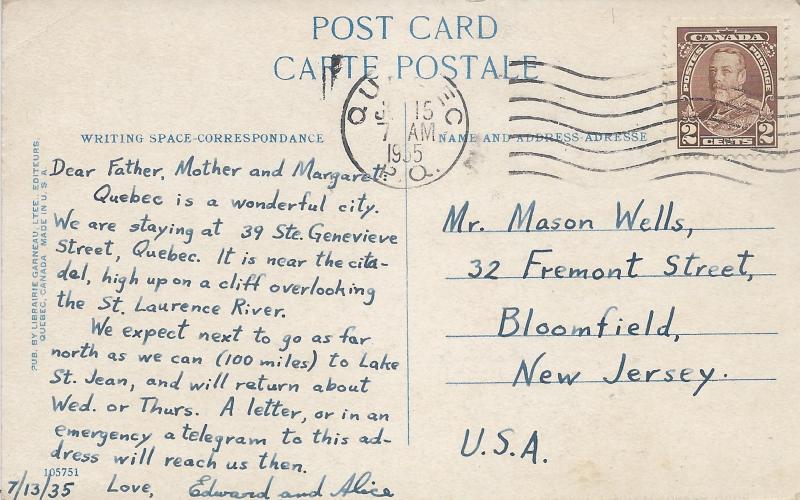 POST CARD
CARTE POSTALE
CANADA
POSTES POSTAGE
2 CENTS 2
QUEBEC
15
7 AM
1935
P.Q.
WRITING SPACE-CORRESPONDANCE
NAME AND ADDRESS-ADRESSE
Dear Father, Mother and Margaret:
Quebec is a wonderful city.
We are staying at 39 Ste. Genevieve
Street, Quebec. It is near the cita-
dal, high up on a cliff overlooking
the St. Laurence River.
We expect next to go as far
north as we can (100 miles) to Lake
St. Jean, and will return about
Wed. or Thurs. A letter, or in an
emergency a telegram to this ad-
dress will reach us then.
Love, Edward and Alice
7/13/35
105751
Mr. Mason Wells,
32 Fremont Street,
Bloomfield,
New Jersey.
U.S.A.
PUB. BY LIBRAIRIE GARNEAU, LTEE., EDITEURS.
QUEBEC, CANADA MADE IN U.S.A.